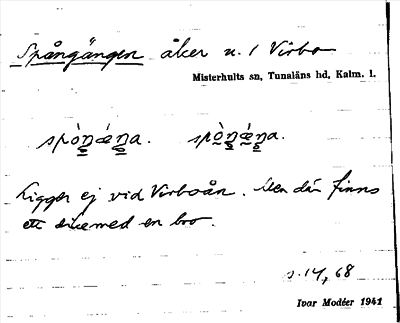 Spångängen åker u. / Virbo
Misterhults sn, Tunaläns hd, Kalm. l.
Ligger ej vid Virboån. Men där finns
ett dike med en bro.
s. 14, 68
Ivar Modéer 1941